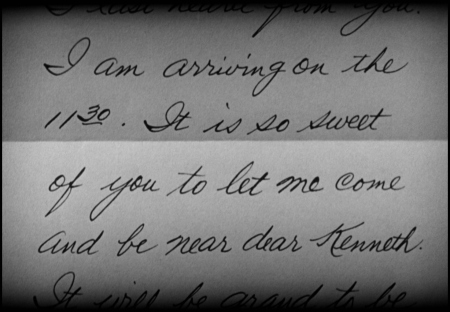 I last heard from you.
I am arriving on the
11³⁰. It is so sweet
of you to let me come
and be near dear Kenneth.
It will be grand to be